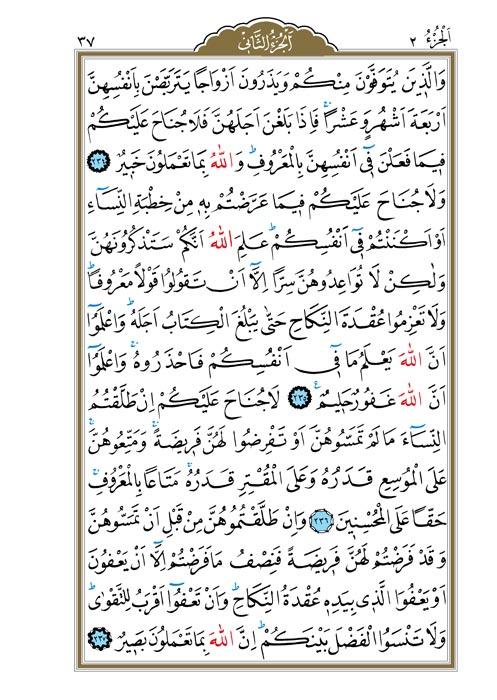 اَلْجُزْءُ ٢
اَلْجُزْءُ الثَّانِي
٣٧
وَالَّذ۪ينَ يُتَوَفَّوْنَ مِنْكُمْ وَيَذَرُونَ اَزْوَاجًا يَتَرَبَّصْنَ بِاَنْفُسِهِنَّ
اَرْبَعَةَ اَشْهُرٍ وَعَشْرًاۚ فَاِذَا بَلَغْنَ اَجَلَهُنَّ فَلَا جُنَاحَ عَلَيْكُمْ
ف۪يمَا فَعَلْنَ ف۪ٓي اَنْفُسِهِنَّ بِالْمَعْرُوفِۜ وَاللّٰهُ بِمَا تَعْمَلُونَ خَب۪يرٌ ﴿٢٣٤﴾
وَلَا جُنَاحَ عَلَيْكُمْ ف۪يمَا عَرَّضْتُمْ بِه۪ مِنْ خِطْبَةِ النِّسَٓاءِ
اَوْ اَكْنَنْتُمْ ف۪ٓي اَنْفُسِكُمْۜ عَلِمَ اللّٰهُ اَنَّكُمْ سَتَذْكُرُونَهُنَّ
وَلٰكِنْ لَا تُوَاعِدُوهُنَّ سِرًّا اِلَّٓا اَنْ تَقُولُوا قَوْلًا مَعْرُوفًاۜ
وَلَا تَعْزِمُوا عُقْدَةَ النِّكَاحِ حَتّٰى يَبْلُغَ الْكِتَابُ اَجَلَهُۜ وَاعْلَمُٓوا
اَنَّ اللّٰهَ يَعْلَمُ مَا ف۪ٓي اَنْفُسِكُمْ فَاحْذَرُوهُۚ وَاعْلَمُٓوا
اَنَّ اللّٰهَ غَفُورٌ حَل۪يمٌ۟ ﴿٢٣٥﴾ لَا جُنَاحَ عَلَيْكُمْ اِنْ طَلَّقْتُمُ
النِّسَٓاءَ مَا لَمْ تَمَسُّوهُنَّ اَوْ تَفْرِضُوا لَهُنَّ فَر۪يضَةًۚ وَمَتِّعُوهُنَّۚ
عَلَى الْمُوسِعِ قَدَرُهُ وَعَلَى الْمُقْتِرِ قَدَرُهُۚ مَتَاعًا بِالْمَعْرُوفِۚ
حَقًّا عَلَى الْمُحْسِن۪ينَ ﴿٢٣٦﴾ وَاِنْ طَلَّقْتُمُوهُنَّ مِنْ قَبْلِ اَنْ تَمَسُّوهُنَّ
وَقَدْ فَرَضْتُمْ لَهُنَّ فَر۪يضَةً فَنِصْفُ مَا فَرَضْتُمْ اِلَّٓا اَنْ يَعْفُونَ
اَوْ يَعْفُوَا الَّذ۪ي بِيَدِه۪ عُقْدَةُ النِّكَاحِۜ وَاَنْ تَعْفُٓوا اَقْرَبُ لِلتَّقْوٰىۜ
وَلَا تَنْسَوُا الْفَضْلَ بَيْنَكُمْۜ اِنَّ اللّٰهَ بِمَا تَعْمَلُونَ بَص۪يرٌ ﴿٢٣٧﴾